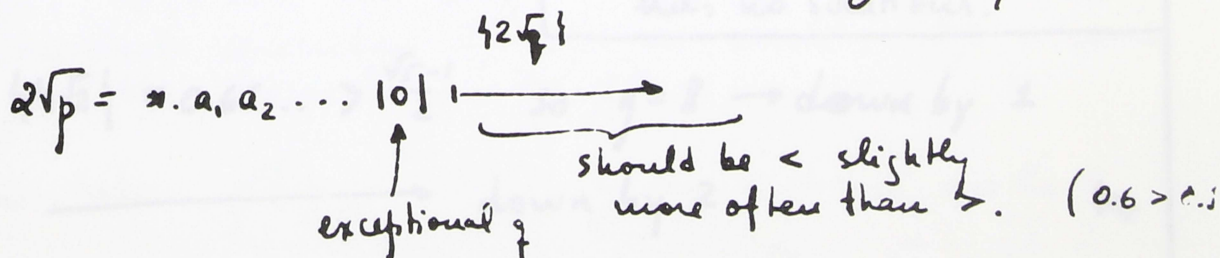 {2√q}
2√p = *. a₁ a₂ ... |0|
should be < slightly
more often than >. (0.6 >
exceptional q